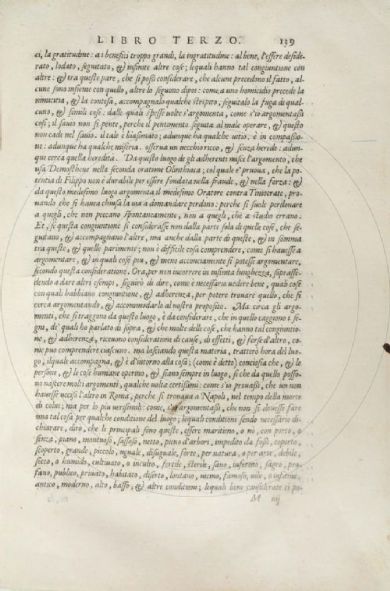 LIBRO TERZO. 139
ci, la gratitudine: a i benefitij troppo grandi, la ingratitudine: al bene, l'essere deside
rato, lodato, seguitato, & infinite altre cose; lequali hanno tal congiuntione con
altre: & tra queste pare, che si possi considerare, che alcune precedino il fatto, al-
cune sono insieme con quello, altre lo seguino dipoi: come a uno homicidio precede la
inimicitia, & la contesa, accompagnalo qualche strepito, seguitalo la fuga di qual-
cuno, & simili cose: dalle quali spesse volte s'argomenta, come s'io argomentassi
così; il sauio non si pente, perche il pentimento seguita al male operare, & questo
non cade nel sauio. il tale è biasimato; adunque ha qualche vitio, è in compassio-
ne: adunque ha qualche miseria. osserua un vecchio ricco, & senza herede: adun-
que cerca quella heredità. Da questo luogo de gli adherenti nasce l'argomento, che
usa Demosthene nella seconda oratione Olinthiaca; col quale e' pruoua, che la po-
tentia di Filippo non è durabile per essere fondata nella fraude, & nella forza: & da
questo medesimo luogo argomenta il medesimo Oratore contra Timocrate, pro-
uando che si hauea chiusa la via a domandare perdono: perche si suole perdonare
a quegli, che non peccano spontaneamente, non a quegli, che a studio errano.
Et, se questa congiuntione si considerasse non dalla parte sola di quelle cose, che se-
guitano, & accompagnano l'altre, ma anche dalla parte di queste, & in somma
tra queste, & quelle parimente; non è difficile cosa comprendere, come si hauesse a
argomentare, & in quali cose più, & meno acconciamente si potesse argomentare,
secondo questa consideratione. Ora, per non incorrere in infinita lunghezza, soprasse-
dendo a dare altri esempi, seguirò di dire, come è necessario uedere bene, quali cose
con quali habbiano congiuntione, & adherenza, per potere trouare quello, che si
cerca argomentando, & accommodarlo al nostro proposito. Ma circa gli argo-
menti, che si traggono da questo luogo, è da considerare, che in quello caggiono i se-
gni, de' quali ho parlato di sopra, & che molte delle cose, che hanno tal congiuntio-
ne, & adherenza, riceuono consideratione di cause, di effetti, & forse d'altro, co-
me può comprendere ciascuno. ma lasciando questa materia, tratterò hora del luo-
go, ilquale accompagna, & è d'intorno alla cosa; (come è detto) conciosia che, & le
persone, & le cose humane operino, & siano sempre in luogo, si che da quello posso-
no nascere molti argomenti, qualche uolta certissimi: come s'io prouassi, che un non
hauesse ucciso l'altro in Roma, perche si trouaua a Napoli, nel tempo della morte
di colui; ma per lo piu uerisimili: come, s'io argomentassi, che non si douesse fare
una tal cosa per qualche conditione del luogo; lequali conditioni sendo necessario di-
chiarare, dico, che le principali sono queste, essere marittimo, o nò, con porto, o
senza, piano, montuoso, sassoso, netto, pieno d'arbori, impedito da fossi, coperto,
scoperto, grande, piccolo, uguale, disuguale, forte, per natura, o per arte, debile,
secco, o humido, cultiuato, o inculto, fertile, sterile, sano, infermo, sagro, pro-
fano, publico, priuato, habitato, diserto, lontano, vicino, famoso, uile, o infame,
antico, moderno, alto, basso, & altre conditioni; lequali bene considerate ci po-
M iij